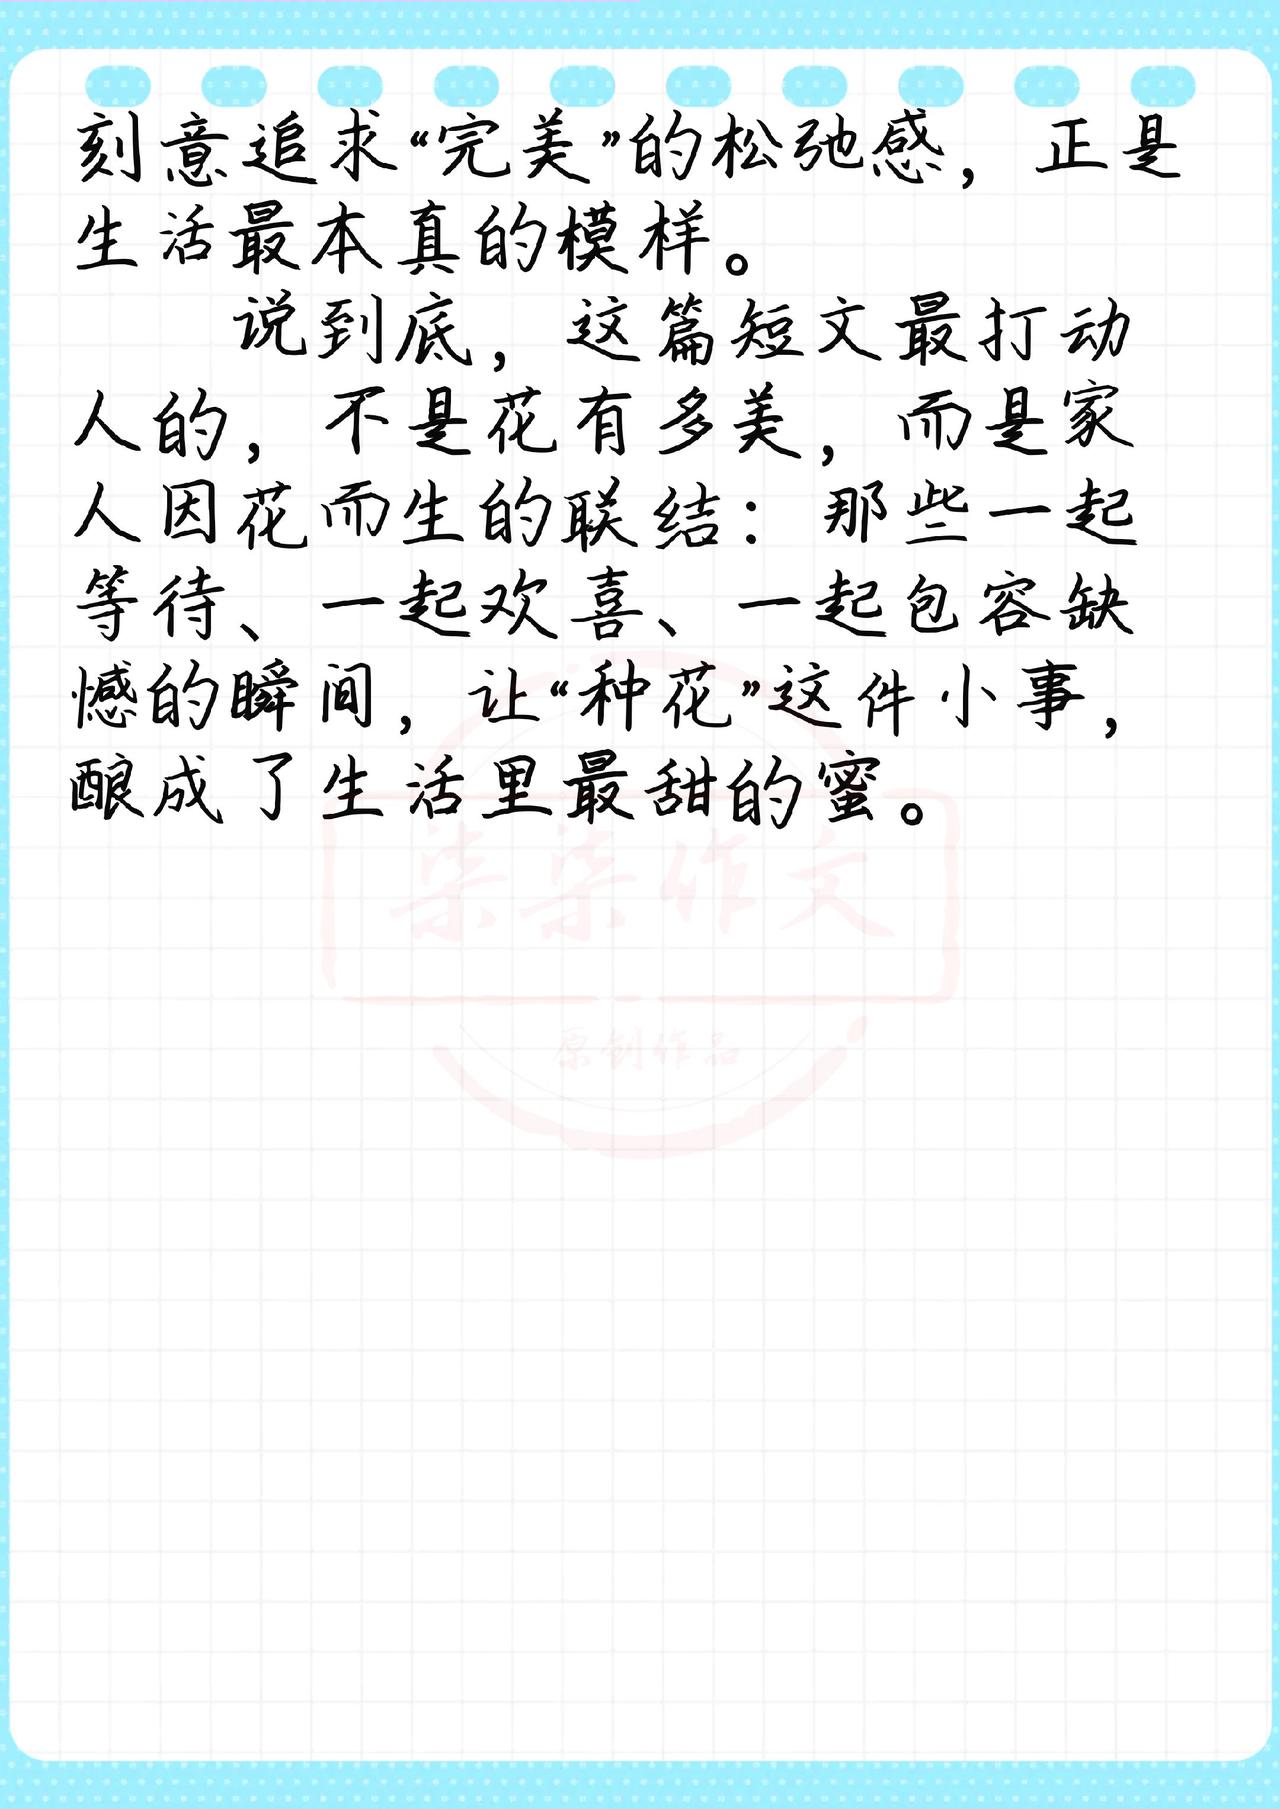 刻意追求“完美”的松弛感，正是
生活最本真的模样。
说到底，这篇短文最打动
人的，不是花有多美，而是家
人因花而生的联结：那些一起
等待、一起欢喜、一起包容缺
憾的瞬间，让“种花”这件小事，
酿成了生活里最甜的蜜。
柒柒作文
原创作品